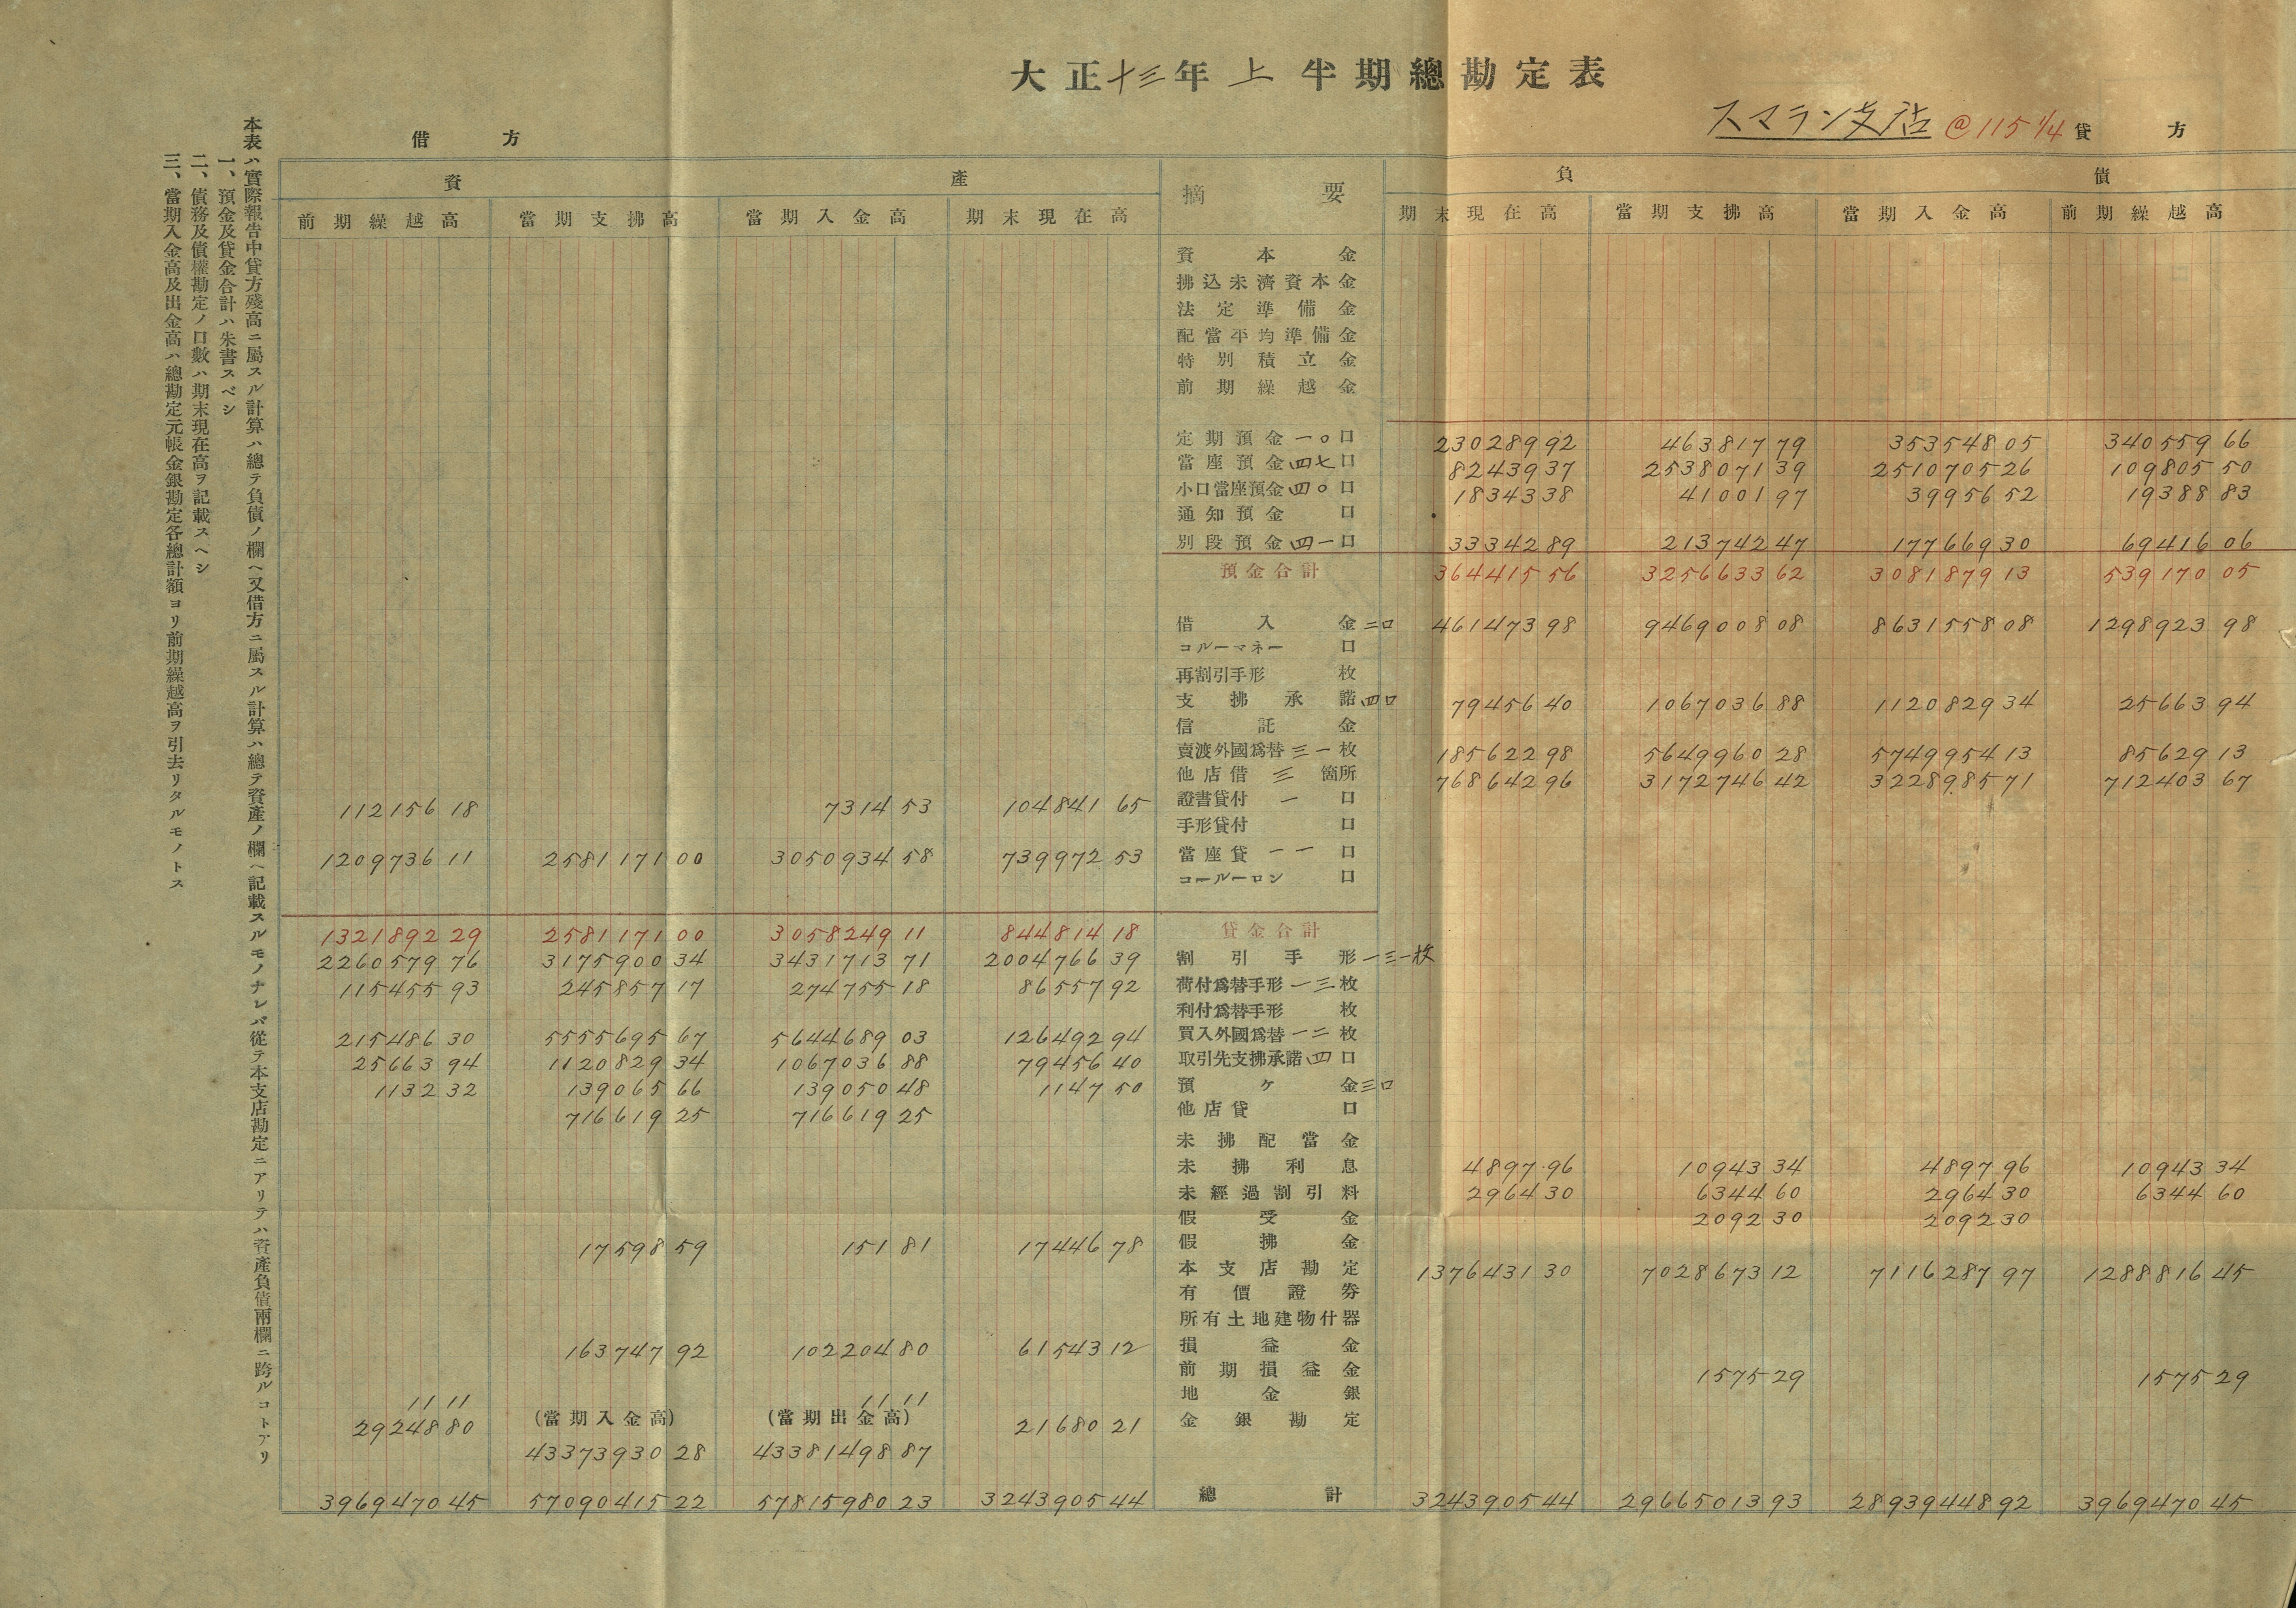 大正十三年上半期總勘定表
スマラン支店 @115 1/4
借方 貸方
資產 摘要 負債
前期繰越高 當期支拂高 當期入金高 期末現在高 期末現在高 當期支拂高 當期入金高 前期繰越高
資本金
拂込未濟資本金
法定準備金
配當平均準備金
特別積立金
前期繰越金
定期預金一〇口 230289 92 463817 79 353548 05 340559 66
當座預金四七口 82439 37 2538071 39 2510705 26 109805 50
小口當座預金四〇口 18343 38 41001 97 39956 52 19388 83
通知預金 口
別段預金四一口 33342 89 213742 47 177669 30 69416 06
預金合計 364415 56 3256633 62 3081879 13 539170 05
借入金二口 461473 98 9469008 08 8631558 08 1298923 98
コルーマネー 口
再割引手形 枚
支拂承諾四口 79456 40 1067036 88 1120829 34 25663 94
信託金
賣渡外國爲替三一枚 185622 98 5649960 28 5749954 13 85629 13
他店借 三 箇所 768642 96 3172746 42 3228985 71 712403 67
112156 18 7314 53 104841 65 證書貸付 一 口
手形貸付 口
1209736 11 2581171 00 3050934 58 739972 53 當座貸一一口
コールーロン 口
1321892 29 2581171 00 3058249 11 844814 18 貸金合計
2260579 76 3175900 34 3431713 71 2004766 39 割引手形一三一枚
115455 93 245857 17 274755 18 86557 92 荷付爲替手形一三枚
利付爲替手形 枚
215486 30 5555695 67 5644689 03 126492 94 買入外國爲替一二枚
25663 94 1120829 34 1067036 88 79456 40 取引先支拂承諾四口
1132 32 139065 66 139050 48 1147 50 預ケ金三口
716619 25 716619 25 他店貸 口
未拂配當金
未拂利息 4897 96 10943 34 4897 96 10943 34
未經過割引料 2964 30 6344 60 2964 30 6344 60
假受金 2092 30 2092 30
17598 59 151 81 17446 78 假拂金
本支店勘定 1376431 30 7028673 12 7116287 97 1288816 45
有價證券
所有土地建物什器
163747 92 102204 80 61543 12 損益金
前期損益金 1575 29 1575 29
11 11 11 11 地金銀
29248 80 (當期入金高) (當期出金高) 21680 21 金銀勘定
43373930 28 43381498 87
3969470 45 57090415 22 57815980 23 3243905 44 總計 3243905 44 29665013 93 28939448 92 3969470 45
本表ハ實際報告中貸方殘高ニ屬スル計算ハ總テ負債ノ欄ヘ又借方ニ屬スル計算ハ總テ資產ノ欄ヘ記載スルモノナレバ從テ本支店勘定ニアリテハ資產負債兩欄ニ跨ルコトアリ
一、預金及貸金合計ハ朱書スベシ
二、債務及債權勘定ノ口數ハ期末現在高ヲ記載スヘシ
三、當期入金高及出金高ハ總勘定元帳金銀勘定各總計額ヨリ前期繰越高ヲ引去リタルモノトス